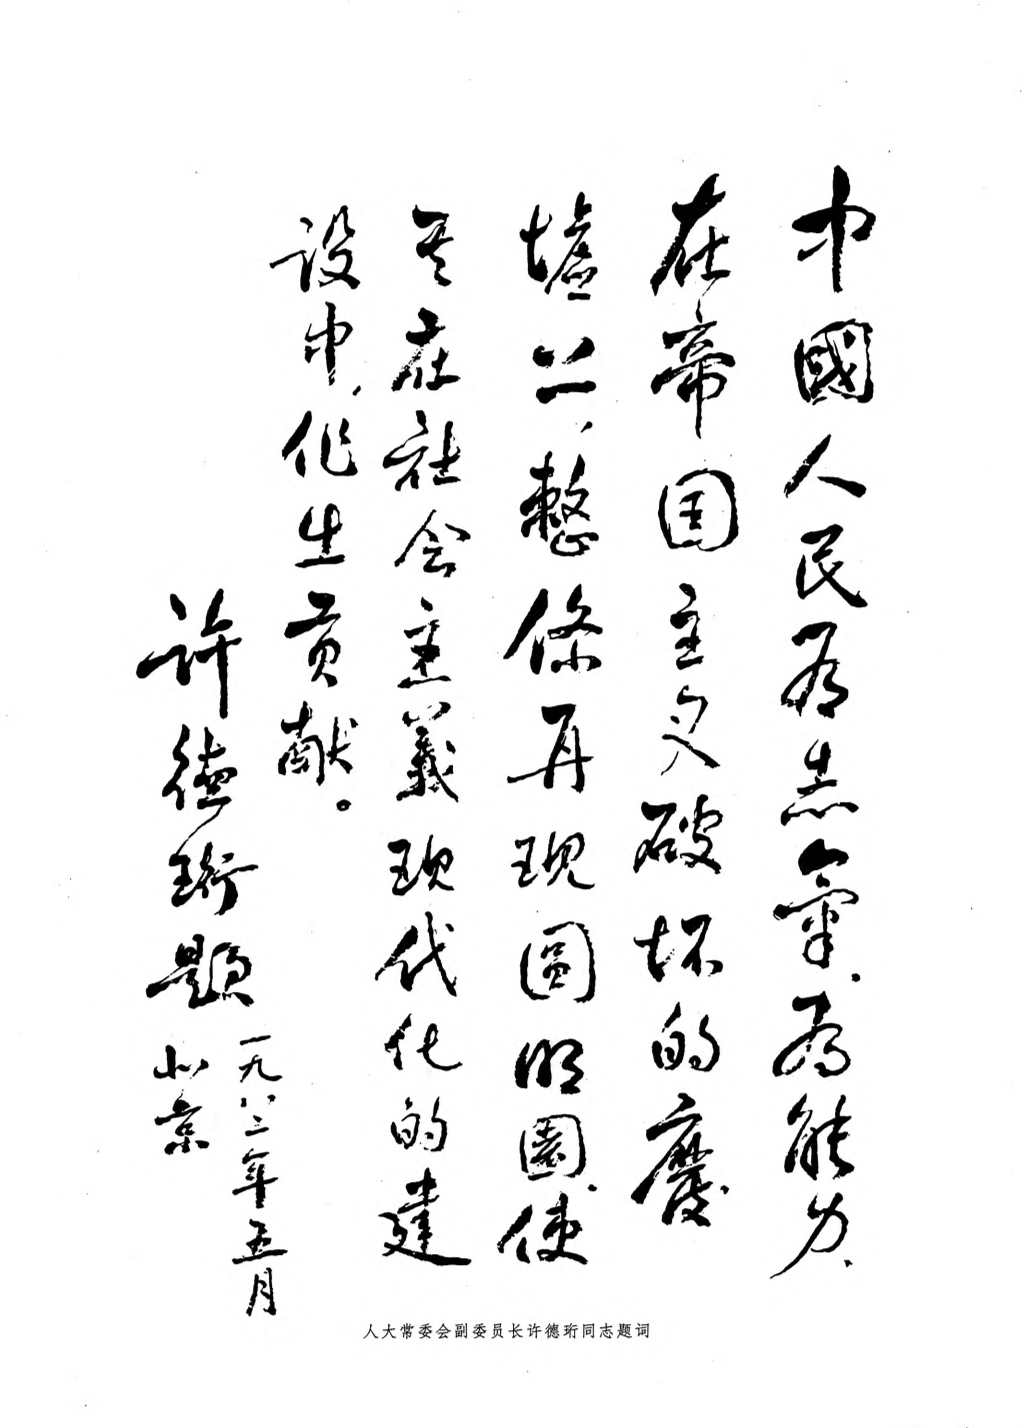 中國人民有志氣、有能力、
在帝国主义破坏的廢
墟上，整修再现圆明園、使
其在社会主義现代化的建
设中，作出贡献。
许德珩题
一九八三年五月
北京
人大常委会副委员长许德珩同志题词